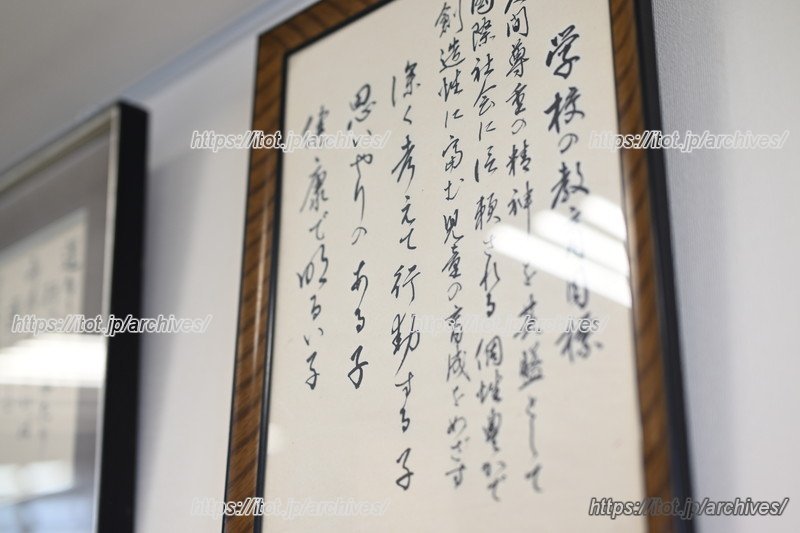 学校の教育目標
人間尊重の精神を基盤として
国際社会に信頼される個性豊かで
創造性に富む児童の育成をめざす
深く考えて行動する子
思いやりのある子
健康で明るい子
https://itot.jp/archives/
https://itot.jp/archives/
https://itot.jp/archives/
https://itot.jp/archives/
https://itot.jp/archives/
https://itot.jp/archives/
https://itot.jp/archives/